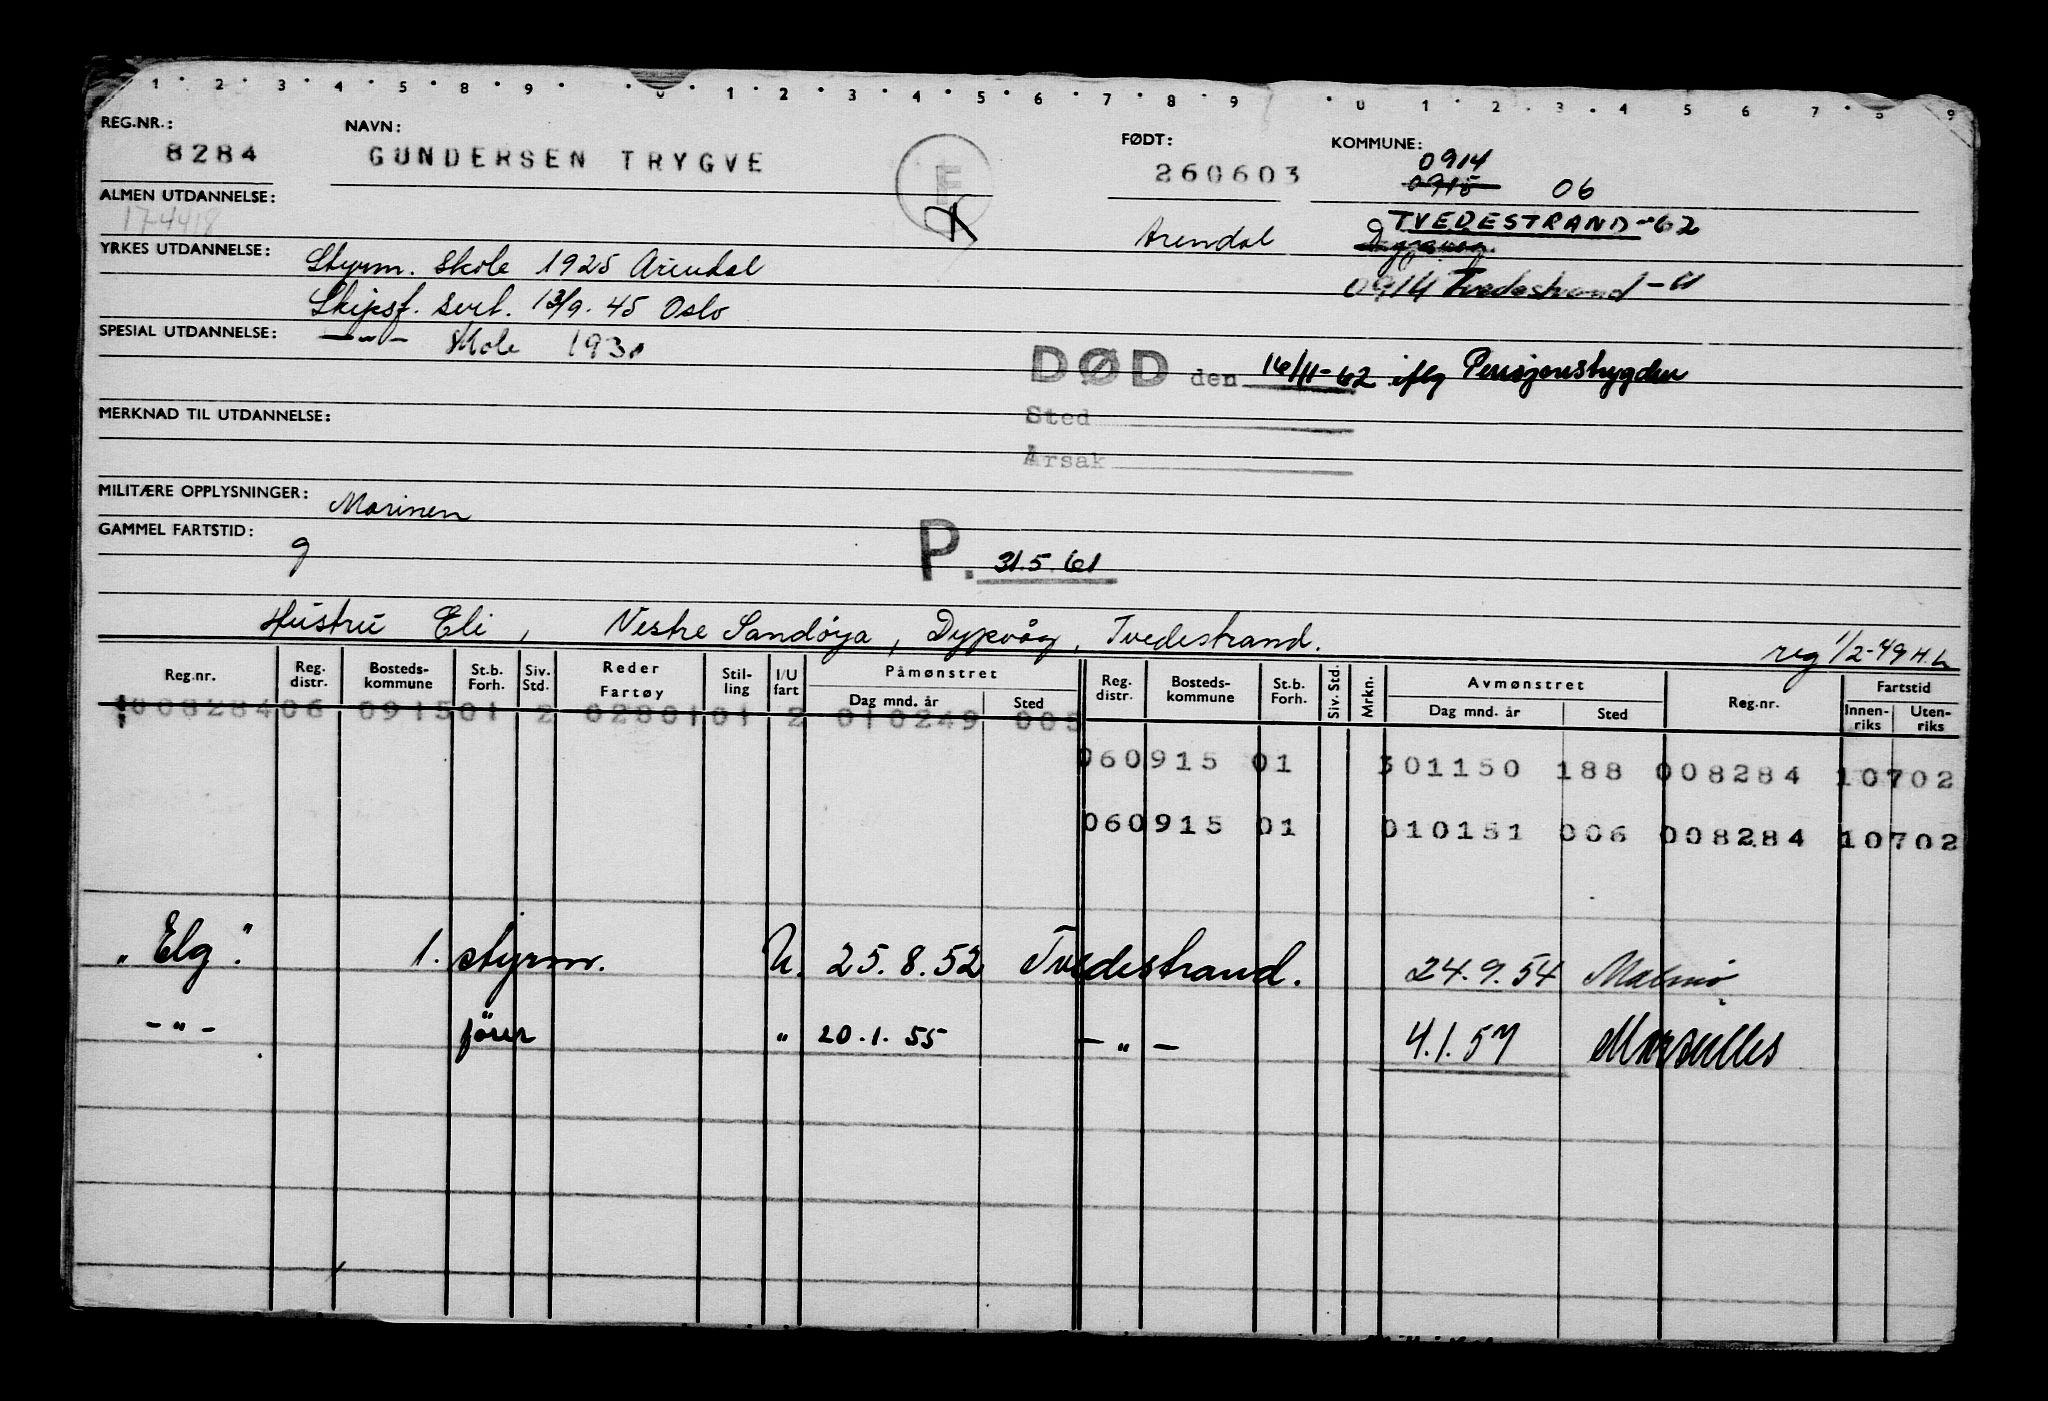 1 2 3 4 5 8 9 0 1 2 3 4 5 6 7 8 9 0 1 2 3 4 5 6 7 8 9
REG.NR.: 8284 NAVN: GUNDERSEN TRYGVE FØDT: 260603 KOMMUNE: 0914
0915 06
ALMEN UTDANNELSE: Arendal TVEDESTRAND-62
YRKES UTDANNELSE: Styrm. skole 1925 Arendal
0914 Tvedestrand - 61
Skipsf. sert. 13/9. 45 Oslo
SPESIAL UTDANNELSE: —"— skole 1930
DØD den 16/11-62 iflg Pensjonstrygden
Sted
Årsak
MERKNAD TIL UTDANNELSE:
MILITÆRE OPPLYSNINGER: Marinen
GAMMEL FARTSTID: 9
P. 31.5.61
Hustru Eli, Vestre Sandøya, Dypvåg, Tvedestrand.
reg 1/2-49 H.L
Reg.nr. Reg. distr. Bosteds- kommune St.b. Forh. Siv. Std. Reder Fartøy Stil- ling I/U fart Påmønstret Dag mnd. år Sted Reg. distr. Bosteds- kommune St.b. Forh. Siv. Std. Mrkn. Avmønstret Dag mnd. år Sted Reg.nr. Fartstid Innen- riks Uten- riks
008284 06 0915 01 2 0280101 2 010249 005
060915 01 301150 188 008284 10702
060915 01 010151 006 008284 10702
"Elg". 1. styrm. U. 25.8.52 Tvedestrand. 24.9.54 Malmø
—"— fører " 20.1.55 —"— 4.1.57 Marseilles